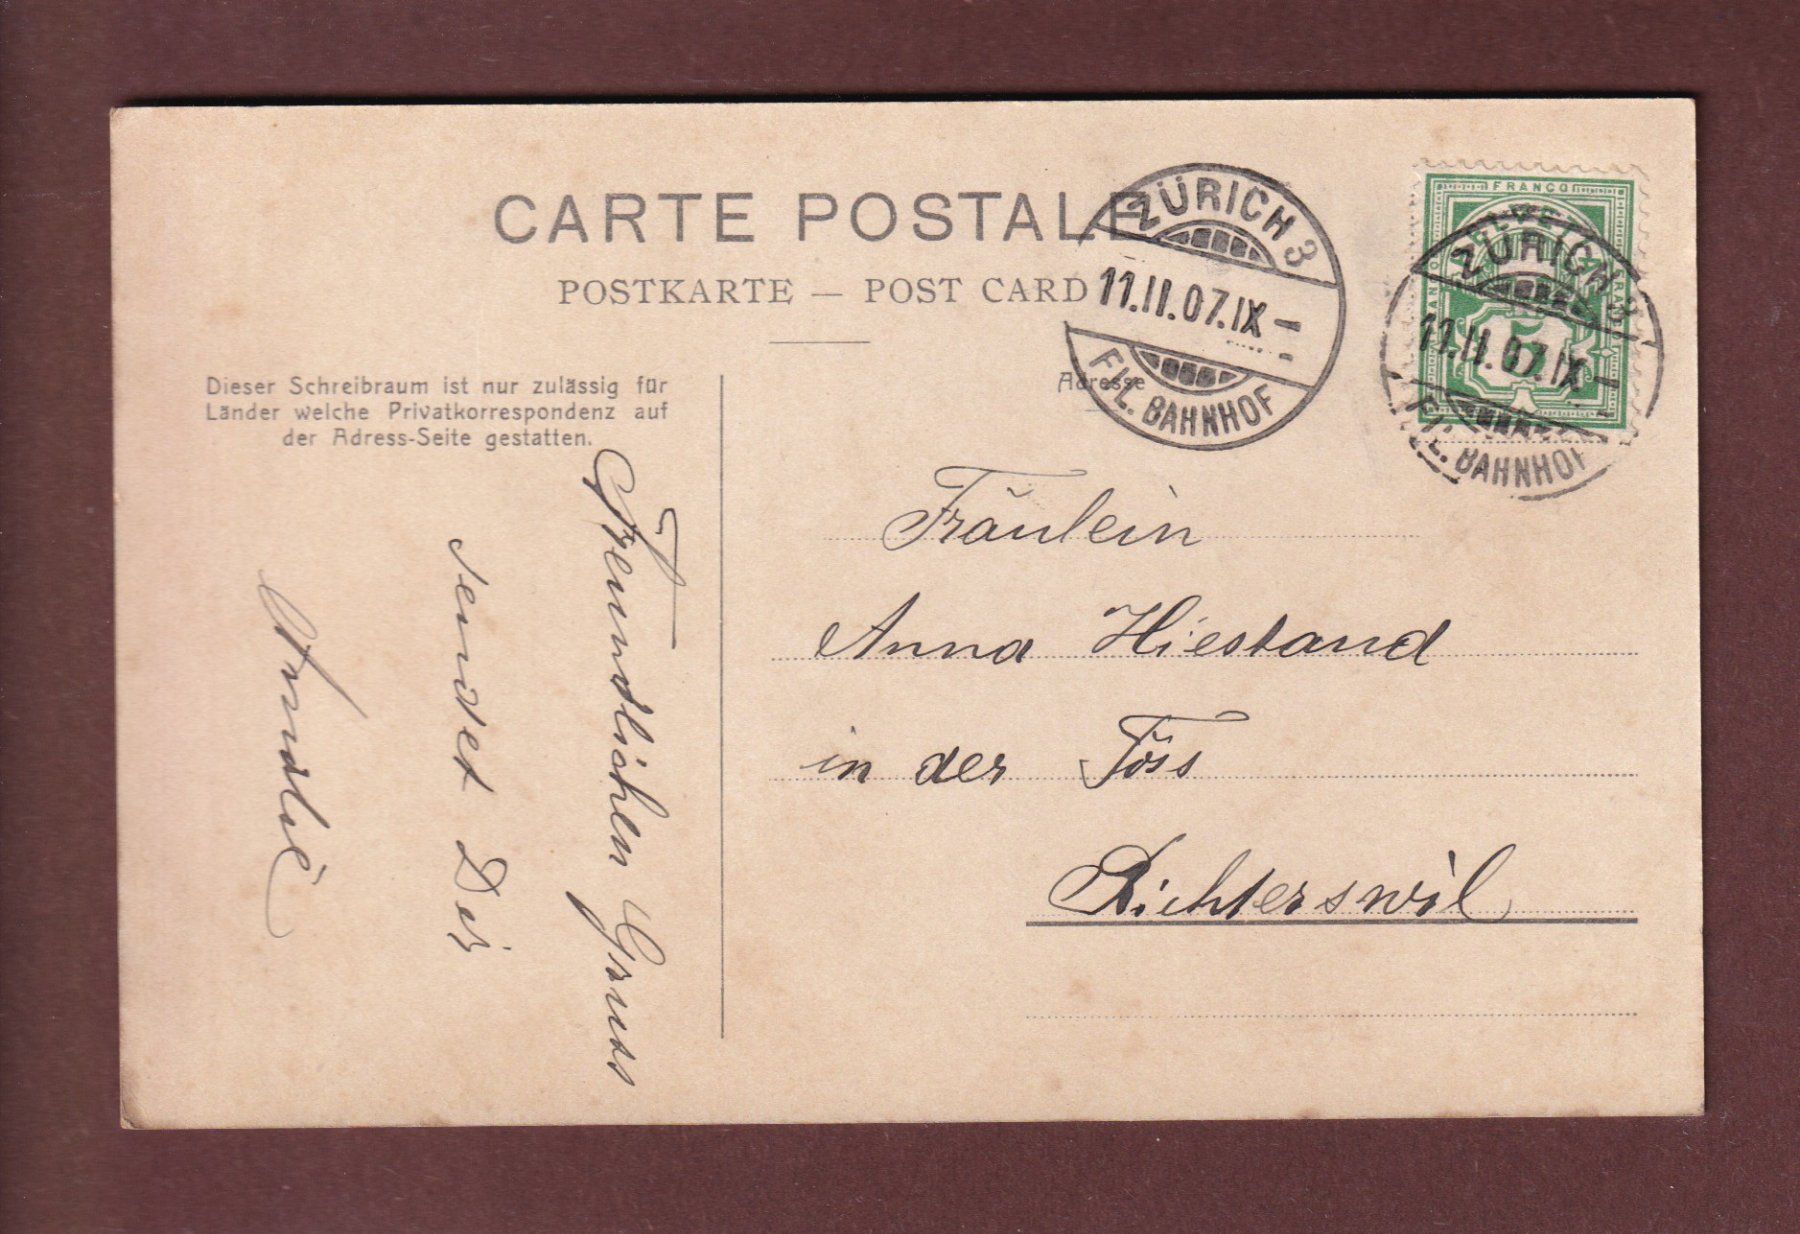 CARTE POSTALE
POSTKARTE — POST CARD
Dieser Schreibraum ist nur zulässig für
Länder welche Privatkorrespondenz auf
der Adress-Seite gestatten.
Adresse
ZÜRICH 3
11.II.07.IX –
FIL. BAHNHOF
FRANCO
5
ZÜRICH 3
11.II.07.IX –
FIL. BAHNHOF
Fräulein
Anna Hiestand
in der Töss
Richterswil
Freundlichen Gruss
sendet Dir